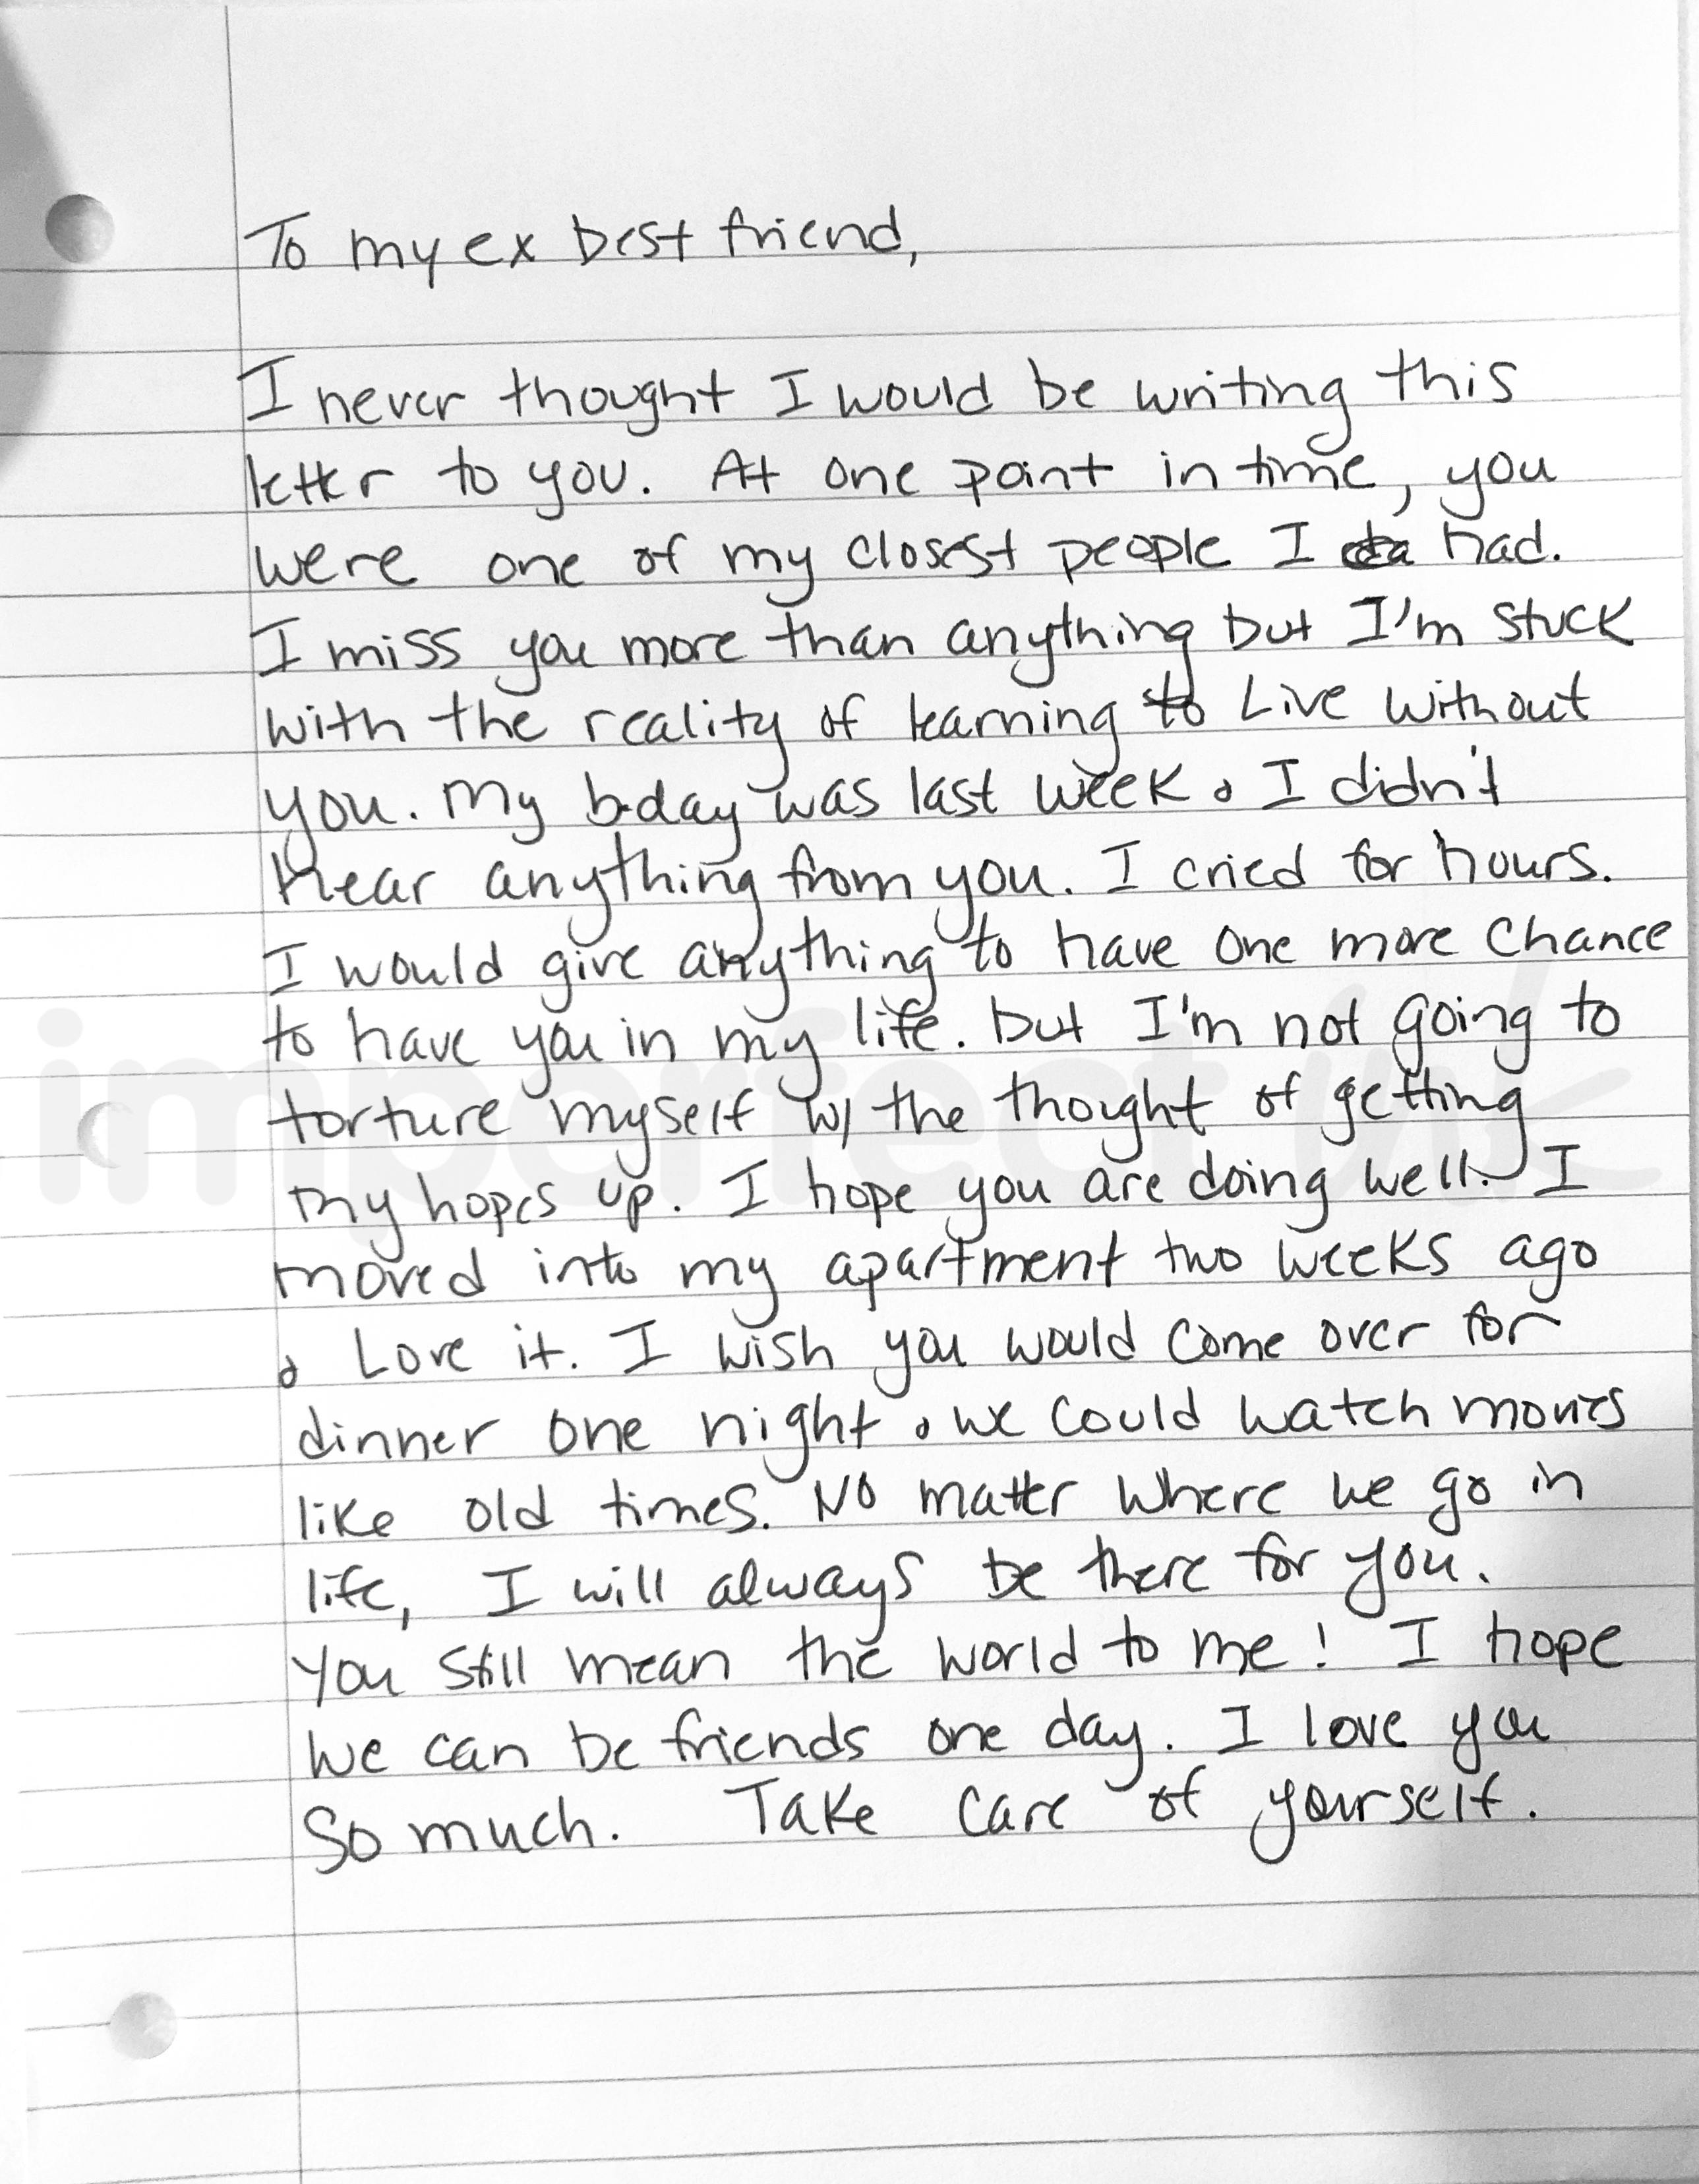 To my ex best friend,
I never thought I would be writing this
letter to you. At one point in time, you
were one of my closest people I had.
I miss you more than anything but I'm stuck
with the reality of learning to Live without
you. My b-day was last week & I didn't
hear anything from you. I cried for hours.
I would give anything to have one more chance
to have you in my life. but I'm not going to
torture myself w/ the thought of getting
my hopes up. I hope you are doing well. I
moved into my apartment two weeks ago
& Love it. I wish you would come over for
dinner one night & we could watch movies
like old times. No matter where we go in
life, I will always be there for you.
You still mean the world to me! I hope
we can be friends one day. I love you
So much. Take care of yourself.
imperfect ink